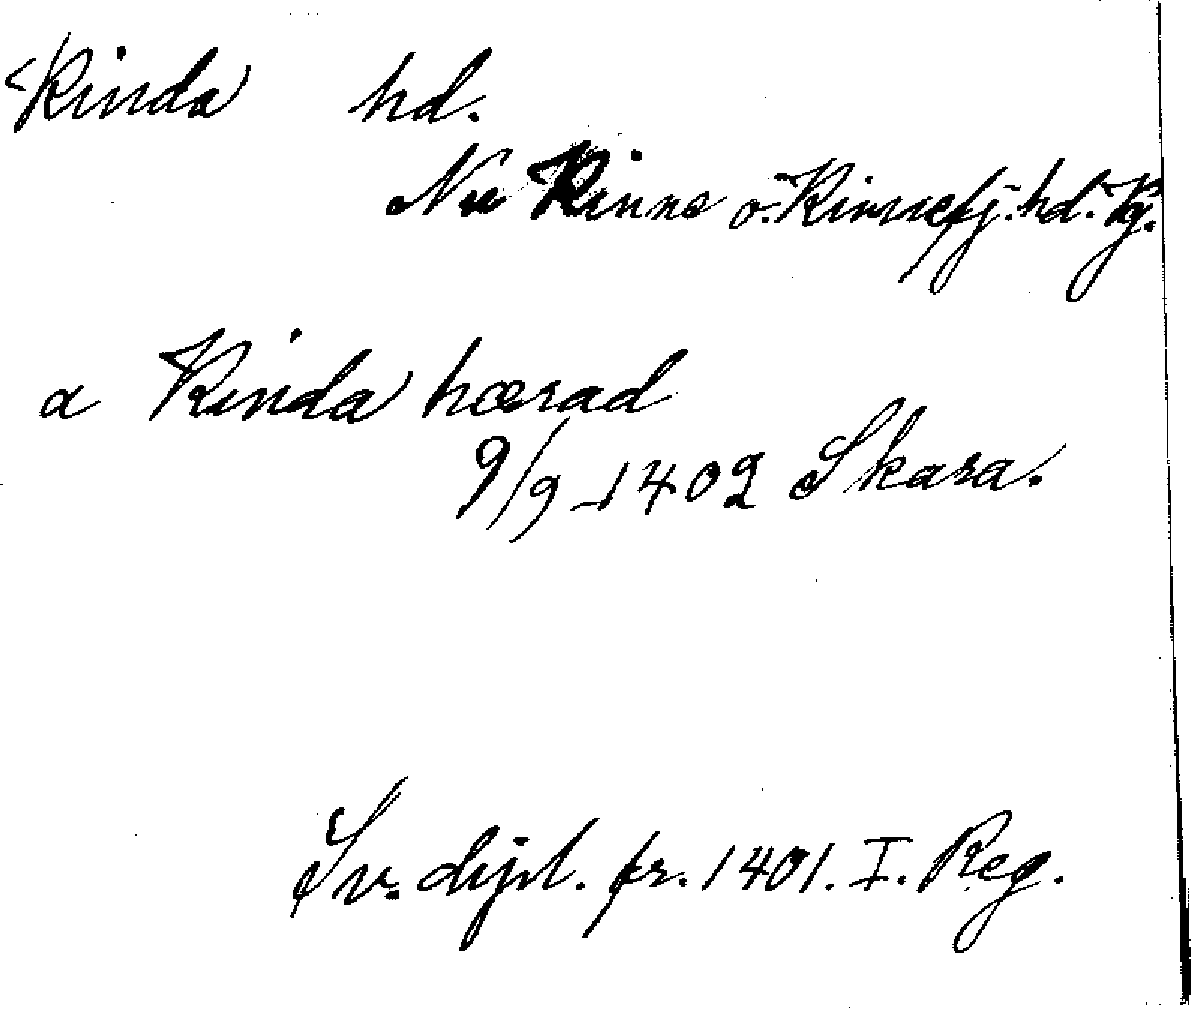 Kinda hd.
Nu Kinne o. Kinnefj. hd. Vg.
a Kinda hærad
9/9 1402 Skara.
Sv. dipl. fr. 1401. I. Reg.